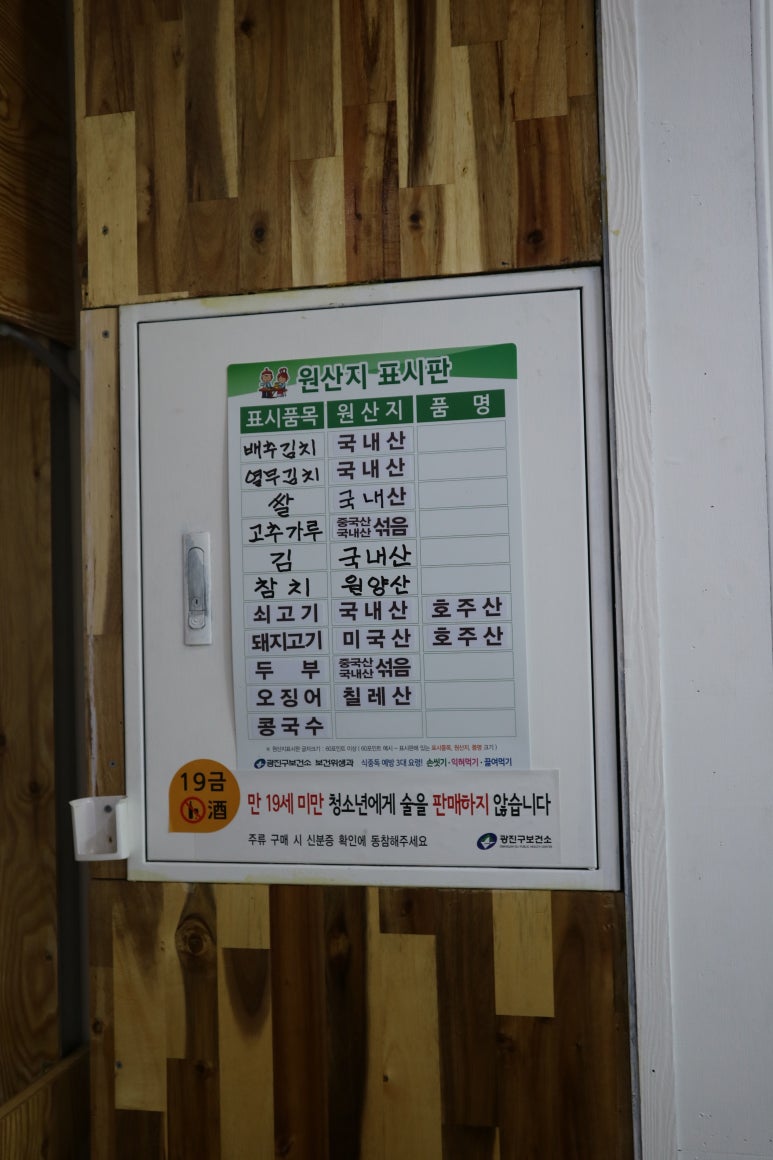 원산지 표시판
표시품목 원산지 품 명
배추김치 국내산
열무김치 국내산
쌀 국내산
고추가루 중국산 국내산 섞음
김 국내산
참치 원양산
쇠고기 국내산 호주산
돼지고기 미국산 호주산
두 부 중국산 국내산 섞음
오징어 칠레산
콩국수
※ 원산지표시판 글자크기 : 60포인트 이상 ( 60포인트 예시 - 표시판에 있는 표시품목, 원산지, 품명 크기 )
광진구보건소 보건위생과 식중독 예방 3대 요령! 손씻기·익혀먹기·끓여먹기
19금
酒
만 19세 미만 청소년에게 술을 판매하지 않습니다
주류 구매 시 신분증 확인에 동참해주세요
광진구보건소